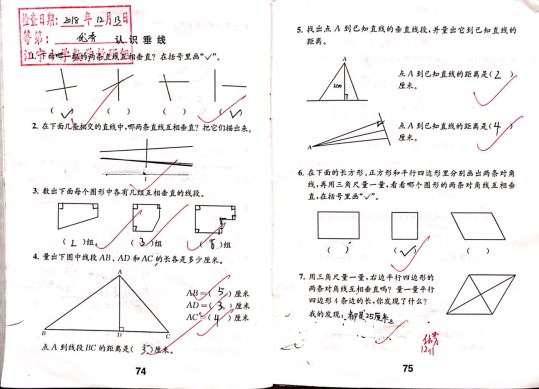 检查日期：2018年12月13日
等第：优秀
认识垂线
两条直线互相垂直？在括号里画“✓”。
( ✓ ) ( ) ( ) ( ✓ )
2. 在下面几条相交的直线中，哪两条直线互相垂直？把它们描出来。
3. 数出下面每个图形中各有几组互相垂直的线段。
( 2 )组 ( 3 )组 ( 8 )组
4. 量出下图中线段 AB、AD 和 AC 的长各是多少厘米。
A
AB=( 5 )厘米
AD=( 3 )厘米
AC=( 4 )厘米
B D C
点 A 到线段 BC 的距离是( 3 )厘米。
74
5. 找出点 A 到已知直线的垂直线段，并量出它到已知直线的
距离。
A
2cm
点 A 到已知直线的距离是( 2 )
厘米。
A
点 A 到已知直线的距离是( 4 )
厘米。
6. 在下面的长方形、正方形和平行四边形里分别画出两条对角
线，再用三角尺量一量，看看哪个图形的两条对角线互相垂
直，在括号里画“✓”。
( ) ( ✓ ) ( )
7. 用三角尺量一量，右边平行四边形的
两条对角线互相垂直吗？量一量平行
四边形 4 条边的长，你发现了什么？
我的发现：都是25厘米。
75